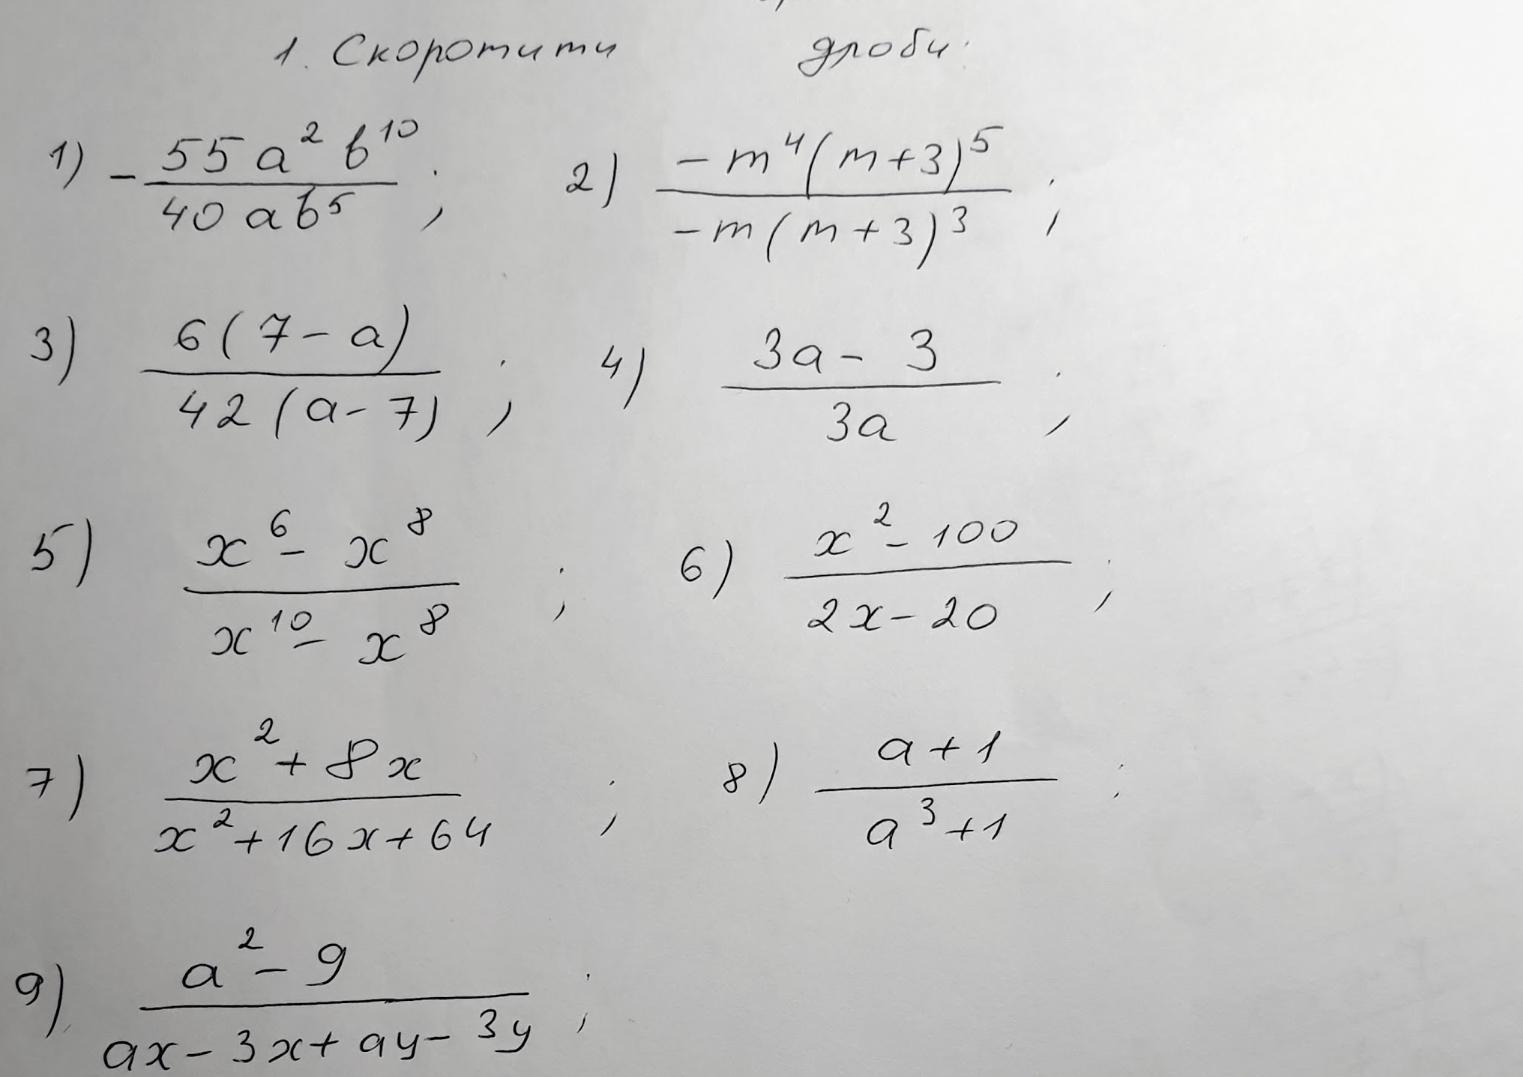 1. Скоротити дроби:
1) - 55a²b¹⁰ / 40ab⁵ ; 2) -m⁴(m+3)⁵ / -m(m+3)³ ;
3) 6(7-a) / 42(a-7) ; 4) 3a-3 / 3a ;
5) x⁶-x⁸ / x¹⁰-x⁸ ; 6) x²-100 / 2x-20 ;
7) x²+8x / x²+16x+64 ; 8) a+1 / a³+1 ;
9) a²-9 / ax-3x+ay-3y ;